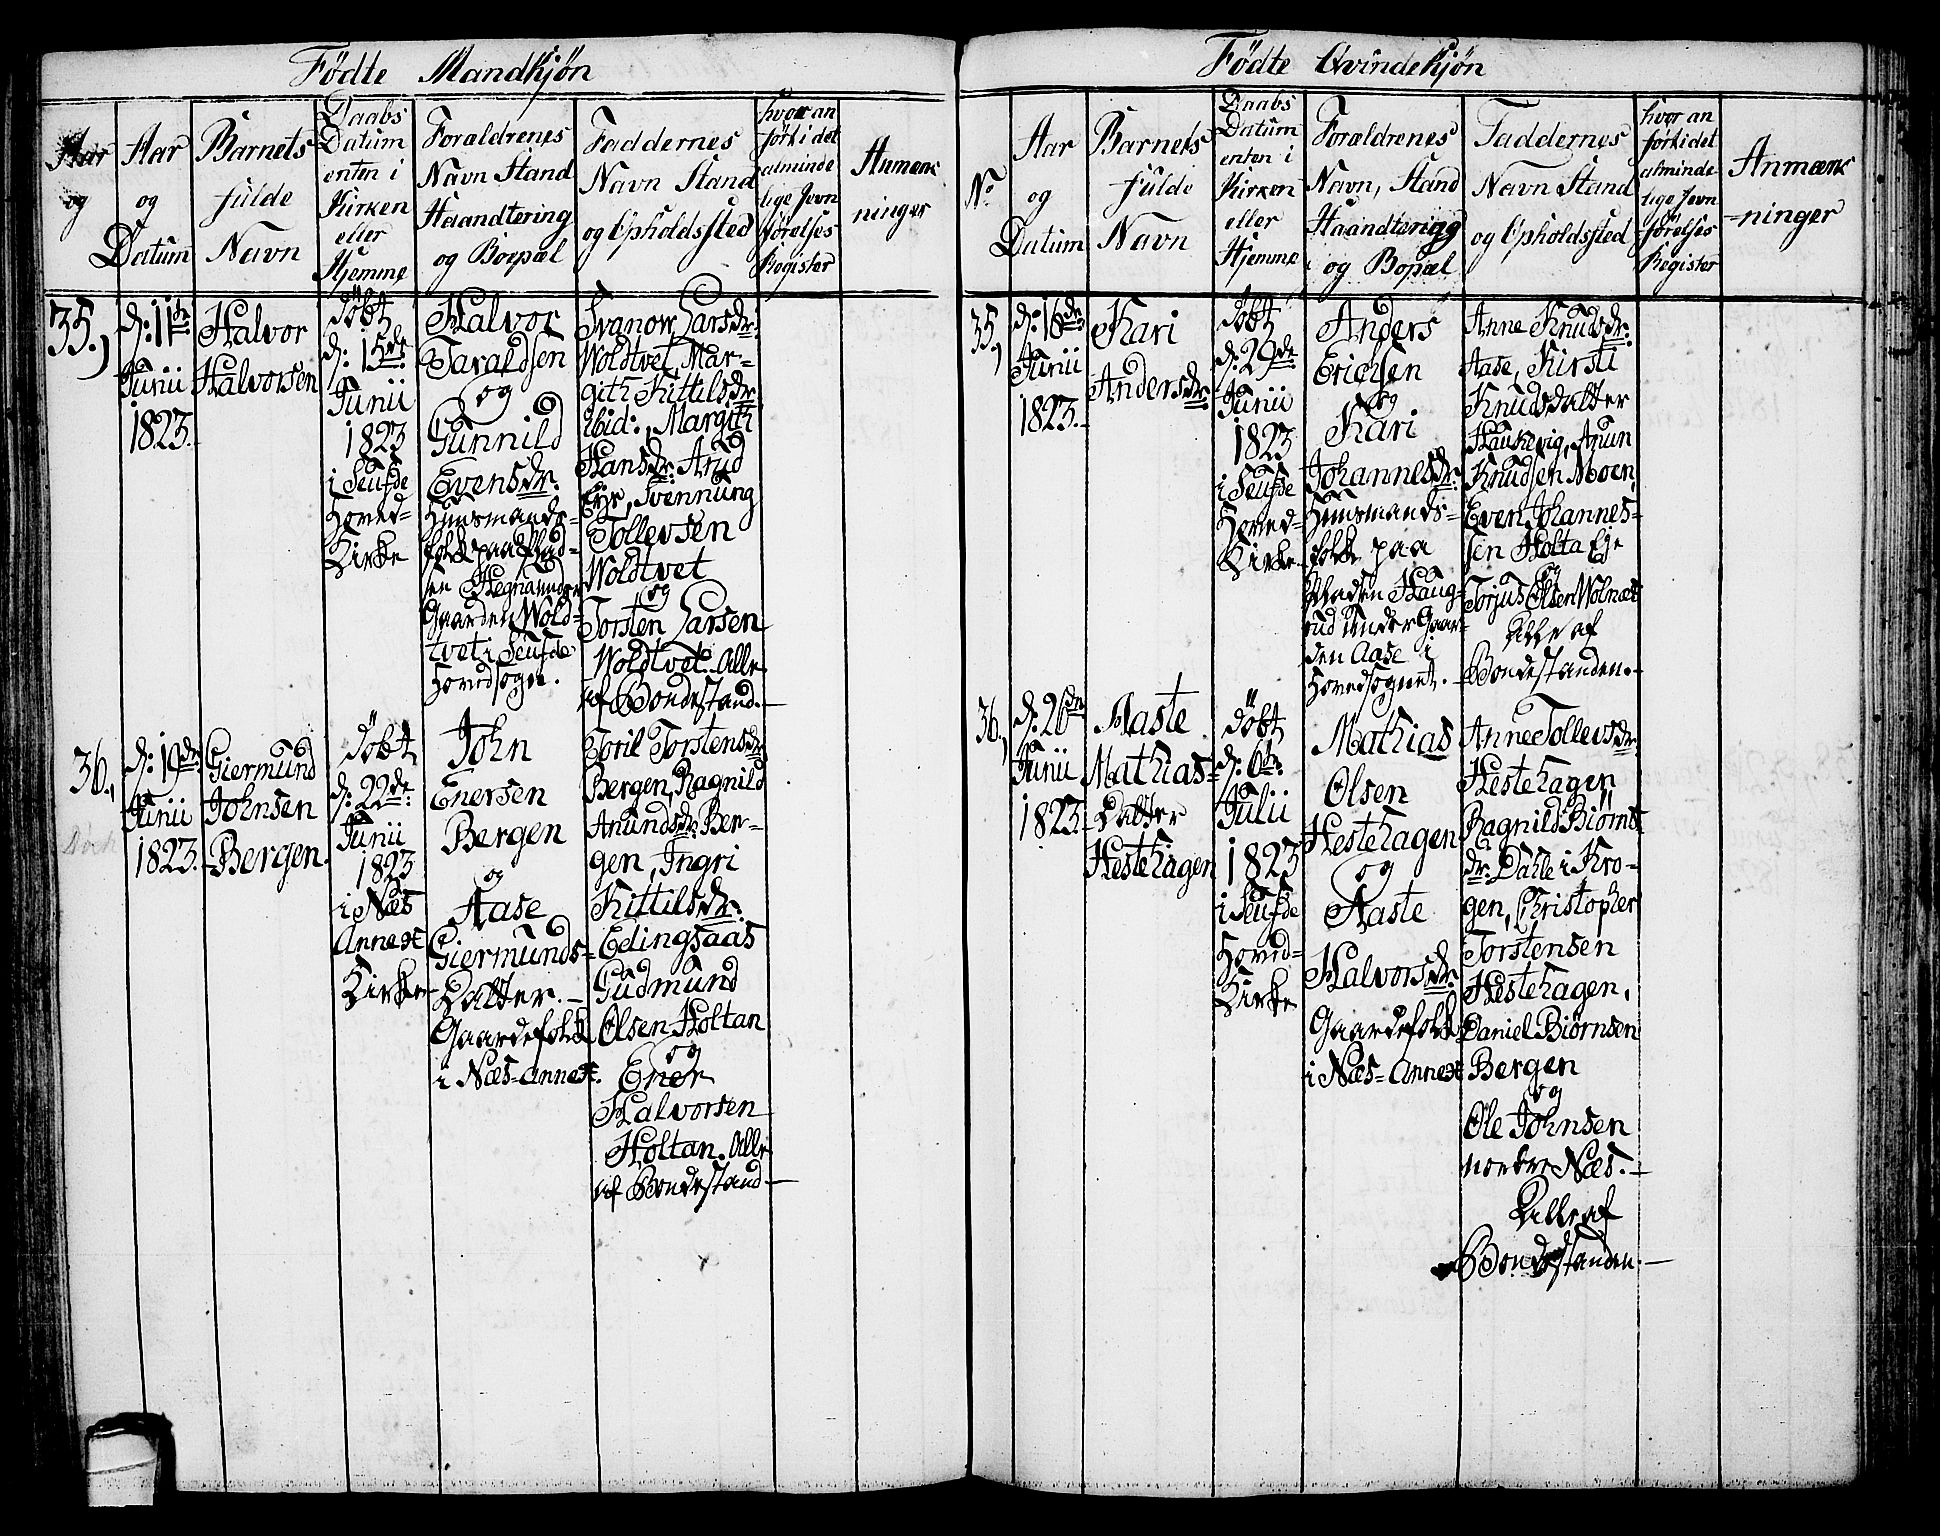 Födte Mandkjön
Aar
og
Aar
og
Datum
Barnets
fulde
Navn
Daabs
Datum
enten i
Kirken
eller
Hjemme
Forældrenes
Navn Stand
Haandtering
og Boepæl
Faddernes
Navn Stand
og Opholdssted
hvor an
fört i det
alminde
lige Jevn
förelses
Register
Anmærk
ninger
35.,
d: 11te
Junii
1823.
Halvor
Halvorsen
döbt
d: 15de
Junii
1823
i Seufde
Hoved-
Kirke
Halvor
Taraldsen
og
Gunnild
Evensdr.
Huusmands-
folk paa Plad-
sen Hegna under
Gaarden Wold-
tvet i Seufde
Hovedsogn.
Svanow Larsdr.
Woldtvet, Mar-
gith Kittilsdr.
ibid:, Margith
Hansdr. Arud
Eje, Svennung
Tollevsen
Woldtvet
og
Torsten Larsen
Woldtvet. Alle
af Bondestand.-
36.,
d: 19de
Junii
1823.
Giermund
Johnsen
Bergen.
döbt
d: 22de
Junii
1823
i Næs
Annex
Kirke
John
Enersen
Bergen
og
Aase
Giermunds-
Datter.-
Gaardefolk
i Næs-Annex.
Toril Torstensdr.
Bergen, Ragnild
Anundsdr. Ber-
gen, Ingri
Kittilsdr.
Edingsaas
Gudmund
Olsen Holtan
og
Ener
Halvorsen
Holtan. Alle
af Bondestand.-
Födte Qvindekjön
No.
Aar
og
Datum
Barnets
fulde
Navn
Daabs
Datum
enten i
Kirken
eller
Hjemme
Forældrenes
Navn, Stand
Haandtering
og Bopæl
Faddernes
Navn Stand
og Opholdssted
hvor an
fört i det
alminde
lige Jevn
förelses
Register
Anmærk
-ninger
35.,
d: 16de
Junii
1823.
Kari
Andersdr.
döbt
d: 29de
Junii
1823
i Seufde
Hoved-
Kirke
Anders
Erichsen
og
Kari
Johannesdr.
Huusmands-
folk paa
Pladsen Haug-
rud under Gaar-
den Aase i
Hovedsognet.
Anne Knudsdr.
Aase, Kirsti
Knudsdatter
Haukevig, Anun
Knudsen Moen,
Even Johannes-
sen Holta Eje
og
Torjus Olsen Wolnæs
Alle af
Bondestanden.-
36.,
d: 26de
Junii
1823.
Aaste
Mathias-
Datter
Hestehagen
döbt
d: 6te
Julii
1823
i Seufde
Hoved-
Kirke
Mathias
Olsen
Hestehagen
og
Aaste
Halvorsdr.
Gaardefolk
i Næs-Annex
Anne Tollevsdr.
Hestehagen
Ragnild Biörns-
dr. Dahle i Kro-
gen, Christopher
Torstensen
Hestehagen,
Daniel Biørnsen
Bergen
og
Ole Johnsen
nordre Næs.-
Alle af
Bondestanden.-